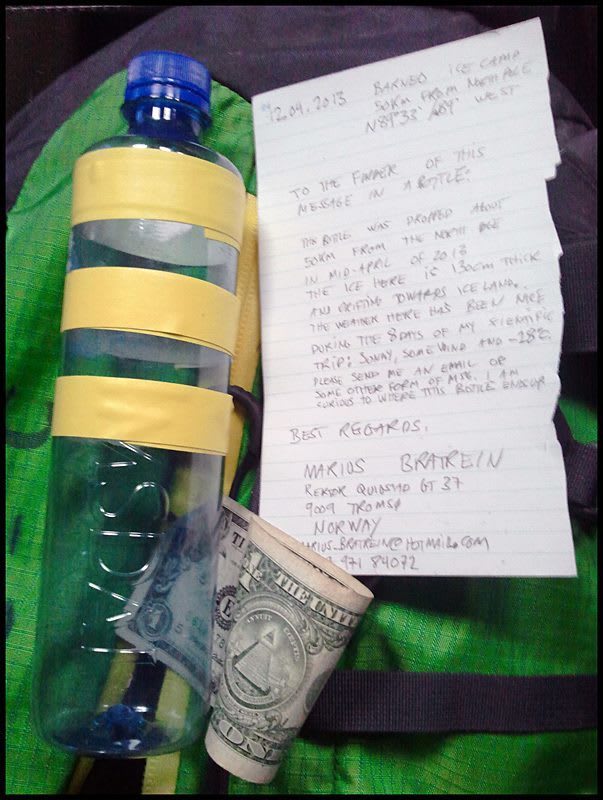 12.04.2013 BARNEO ICE CAMP
50KM FROM NORTH POLE
WEST
TO THE FINDER OF THIS
MESSAGE IN A BOTTLE:
THIS BOTTLE WAS DROPPED ABOUT
50KM FROM THE NORTH POLE
IN MID-APRIL OF 2013
THE ICE HERE IS 130CM THICK
AND DRIFTING TOWARDS ICELAND.
THE WEATHER HERE HAS BEEN NICE
DURING THE 8 DAYS OF MY SCIENTIFIC
TRIP: SUNNY, SOME WIND AND -28°C
PLEASE SEND ME AN EMAIL OR
SOME OTHER FORM OF MSG. I AM
CURIOUS TO WHERE THIS BOTTLE ENDS UP
BEST REGARDS,
MARIUS BRATREIN
REKTOR QVIGSTAD GT 37
9009 TROMSØ
NORWAY
MARIUS_BRATREIN@HOTMAIL.COM
971 84072
VOSS
THE UNITED
ANNUIT COEPTIS
ONE